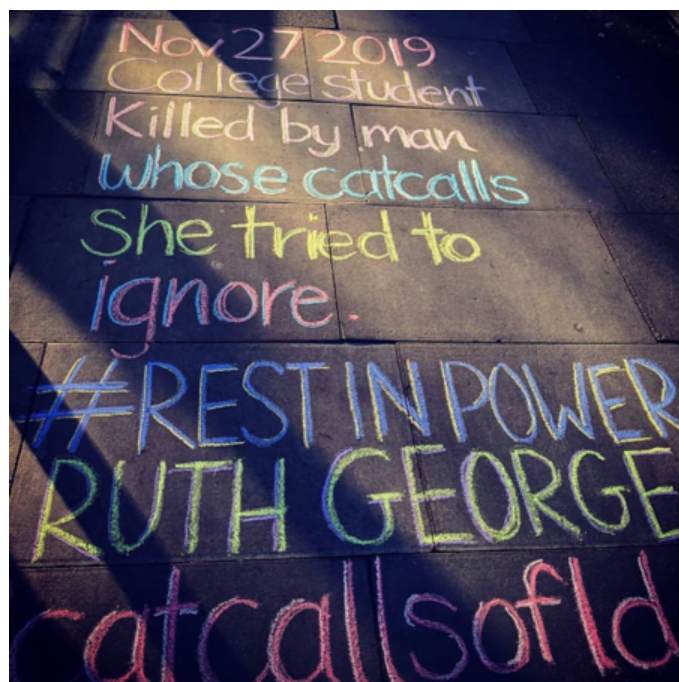 Nov 27 2019
College student
Killed by man
whose catcalls
She tried to
ignore.
#REST IN POWER
RUTH GEORGE
catcallsofld